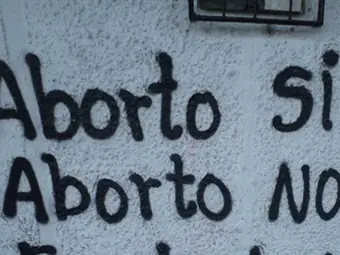 Aborto Si
Aborto NO